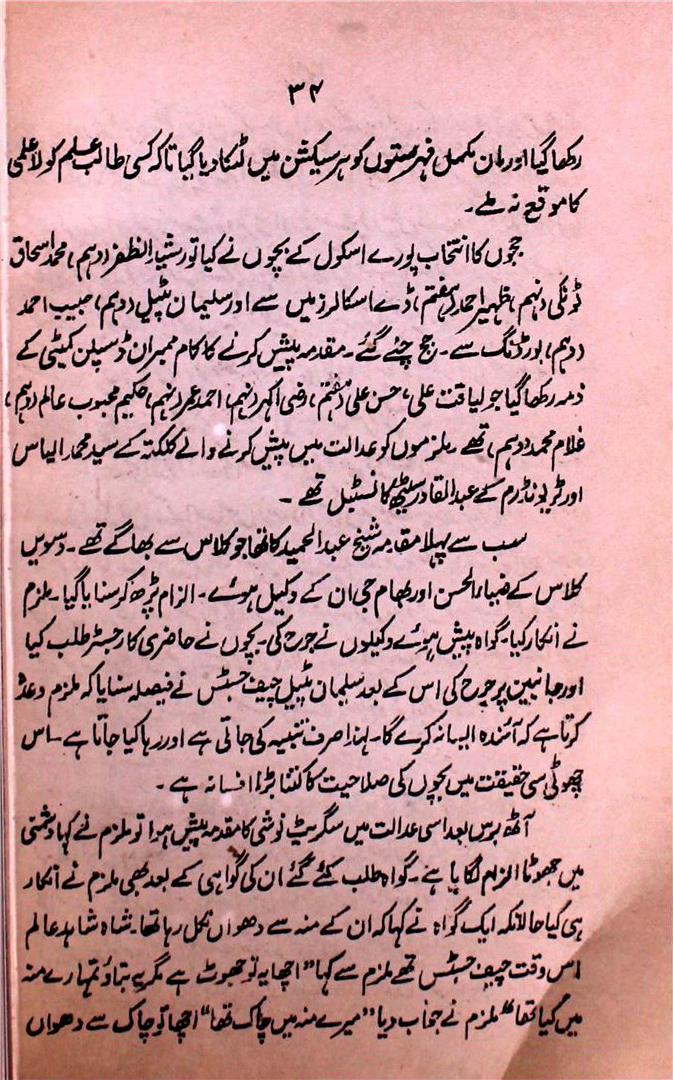 ۳۴
رکھا گیا اور ان مکمل فہرستوں کو ہر سیکشن میں لٹکا دیا گیا تاکہ کسی طالب علم کو لاعلمی
کا موقع نہ ملے۔
ججوں کا انتخاب پورے اسکول کے بچوں نے کیا تو رشید الظفر (دہم)، محمد اسحاق
ٹونکی (نہم)، ظہیر احمد (ہفتم)، ڈے اسکالرز میں سے اور سلیمان پٹیل (دہم)، حبیب احمد
(دہم)، بورڈنگ سے۔ جج چنے گئے۔ مقدمہ پیش کرنے کا کام ممبران ڈسپلن کمیٹی کے
ذمہ رکھا گیا جو لیاقت علی، حسن علی (ہفتم)، رضی اکبر (نہم)، احمد عمر (نہم)، حکیم محبوب عالم (دہم)،
غلام محمد (دہم)، تھے۔ ملزموں کو عدالت میں پیش کرنے والے کلکتہ کے سید محمد الیاس
اور ٹریونڈرم کے عبدالقادر سیٹھ کانسٹبل تھے۔
سب سے پہلا مقدمہ شیخ عبدالحمید کا تھا جو کلاس سے بھاگے تھے۔ دسویں
کلاس کے ضیاء الحسن اور بھام جی ان کے وکیل ہوئے۔ الزام پڑھ کر سنایا گیا۔ ملزم
نے انکار کیا۔ گواہ پیش ہوئے وکیلوں نے جرح کی۔ بچوں نے حاضری کا رجسٹر طلب کیا
اور جانبین پر جرح کی اس کے بعد سلیمان پٹیل چیف جسٹس نے فیصلہ سنایا کہ ملزم وعدہ
کرتا ہے کہ آئندہ ایسا نہ کرے گا۔ لہذا صرف تنبیہ کی جاتی ہے اور رہا کیا جاتا ہے۔ اس
چھوٹی سی حقیقت میں بچوں کی صلاحیت کا کتنا بڑا افسانہ ہے۔
آٹھ برس بعد اسی عدالت میں سگریٹ نوشی کا مقدمہ پیش ہوا تو ملزم نے کہا دشمنی
میں جھوٹا الزام لگایا ہے۔ گواہ طلب کئے گئے ان کی گواہی کے بعد بھی ملزم نے انکار
ہی کیا حالانکہ ایک گواہ نے کہا کہ ان کے منہ سے دھواں نکل رہا تھا۔ شاہ شاہد عالم
اس وقت چیف جسٹس تھے ملزم سے کہا "اچھا یہ تو جھوٹ ہے مگر یہ بتاؤ تمہارے منہ
میں کیا تھا" ملزم نے جواب دیا "میرے منہ میں چاک تھا" اچھا تو چاک سے دھواں